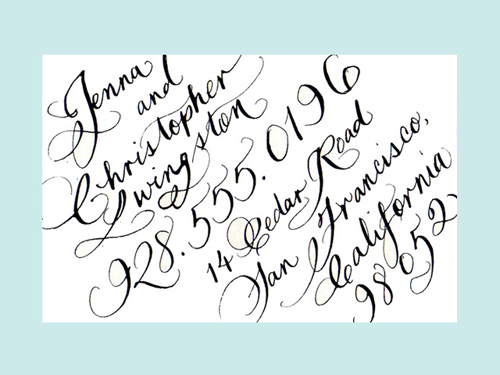 Jenna
and
Christopher
Livingston
928.555.0196
14 Cedar Road
San Francisco,
California
98052